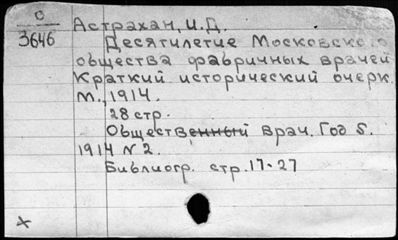 О
3646
Астрахан, И.Д.
Десятилетие Московского
общества фабричных врачей
Краткий исторический очерк.
М., 1914.
28 стр.
Общественный врач. Год 5.
1914 № 2.
Библиогр. стр. 17-27